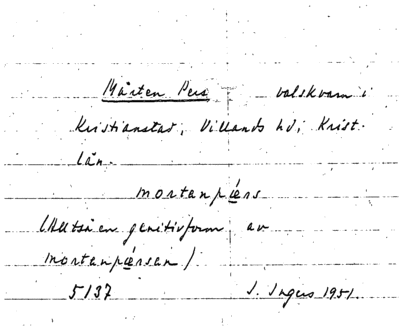 Mårten Pers valskvarn i
Kristianstad, Villands hd, Krist.
län.
mortanpæ̱rs
(Alltså en genitivform av
mortanpæ̱rsan)
5137 I. Ingers 1951.